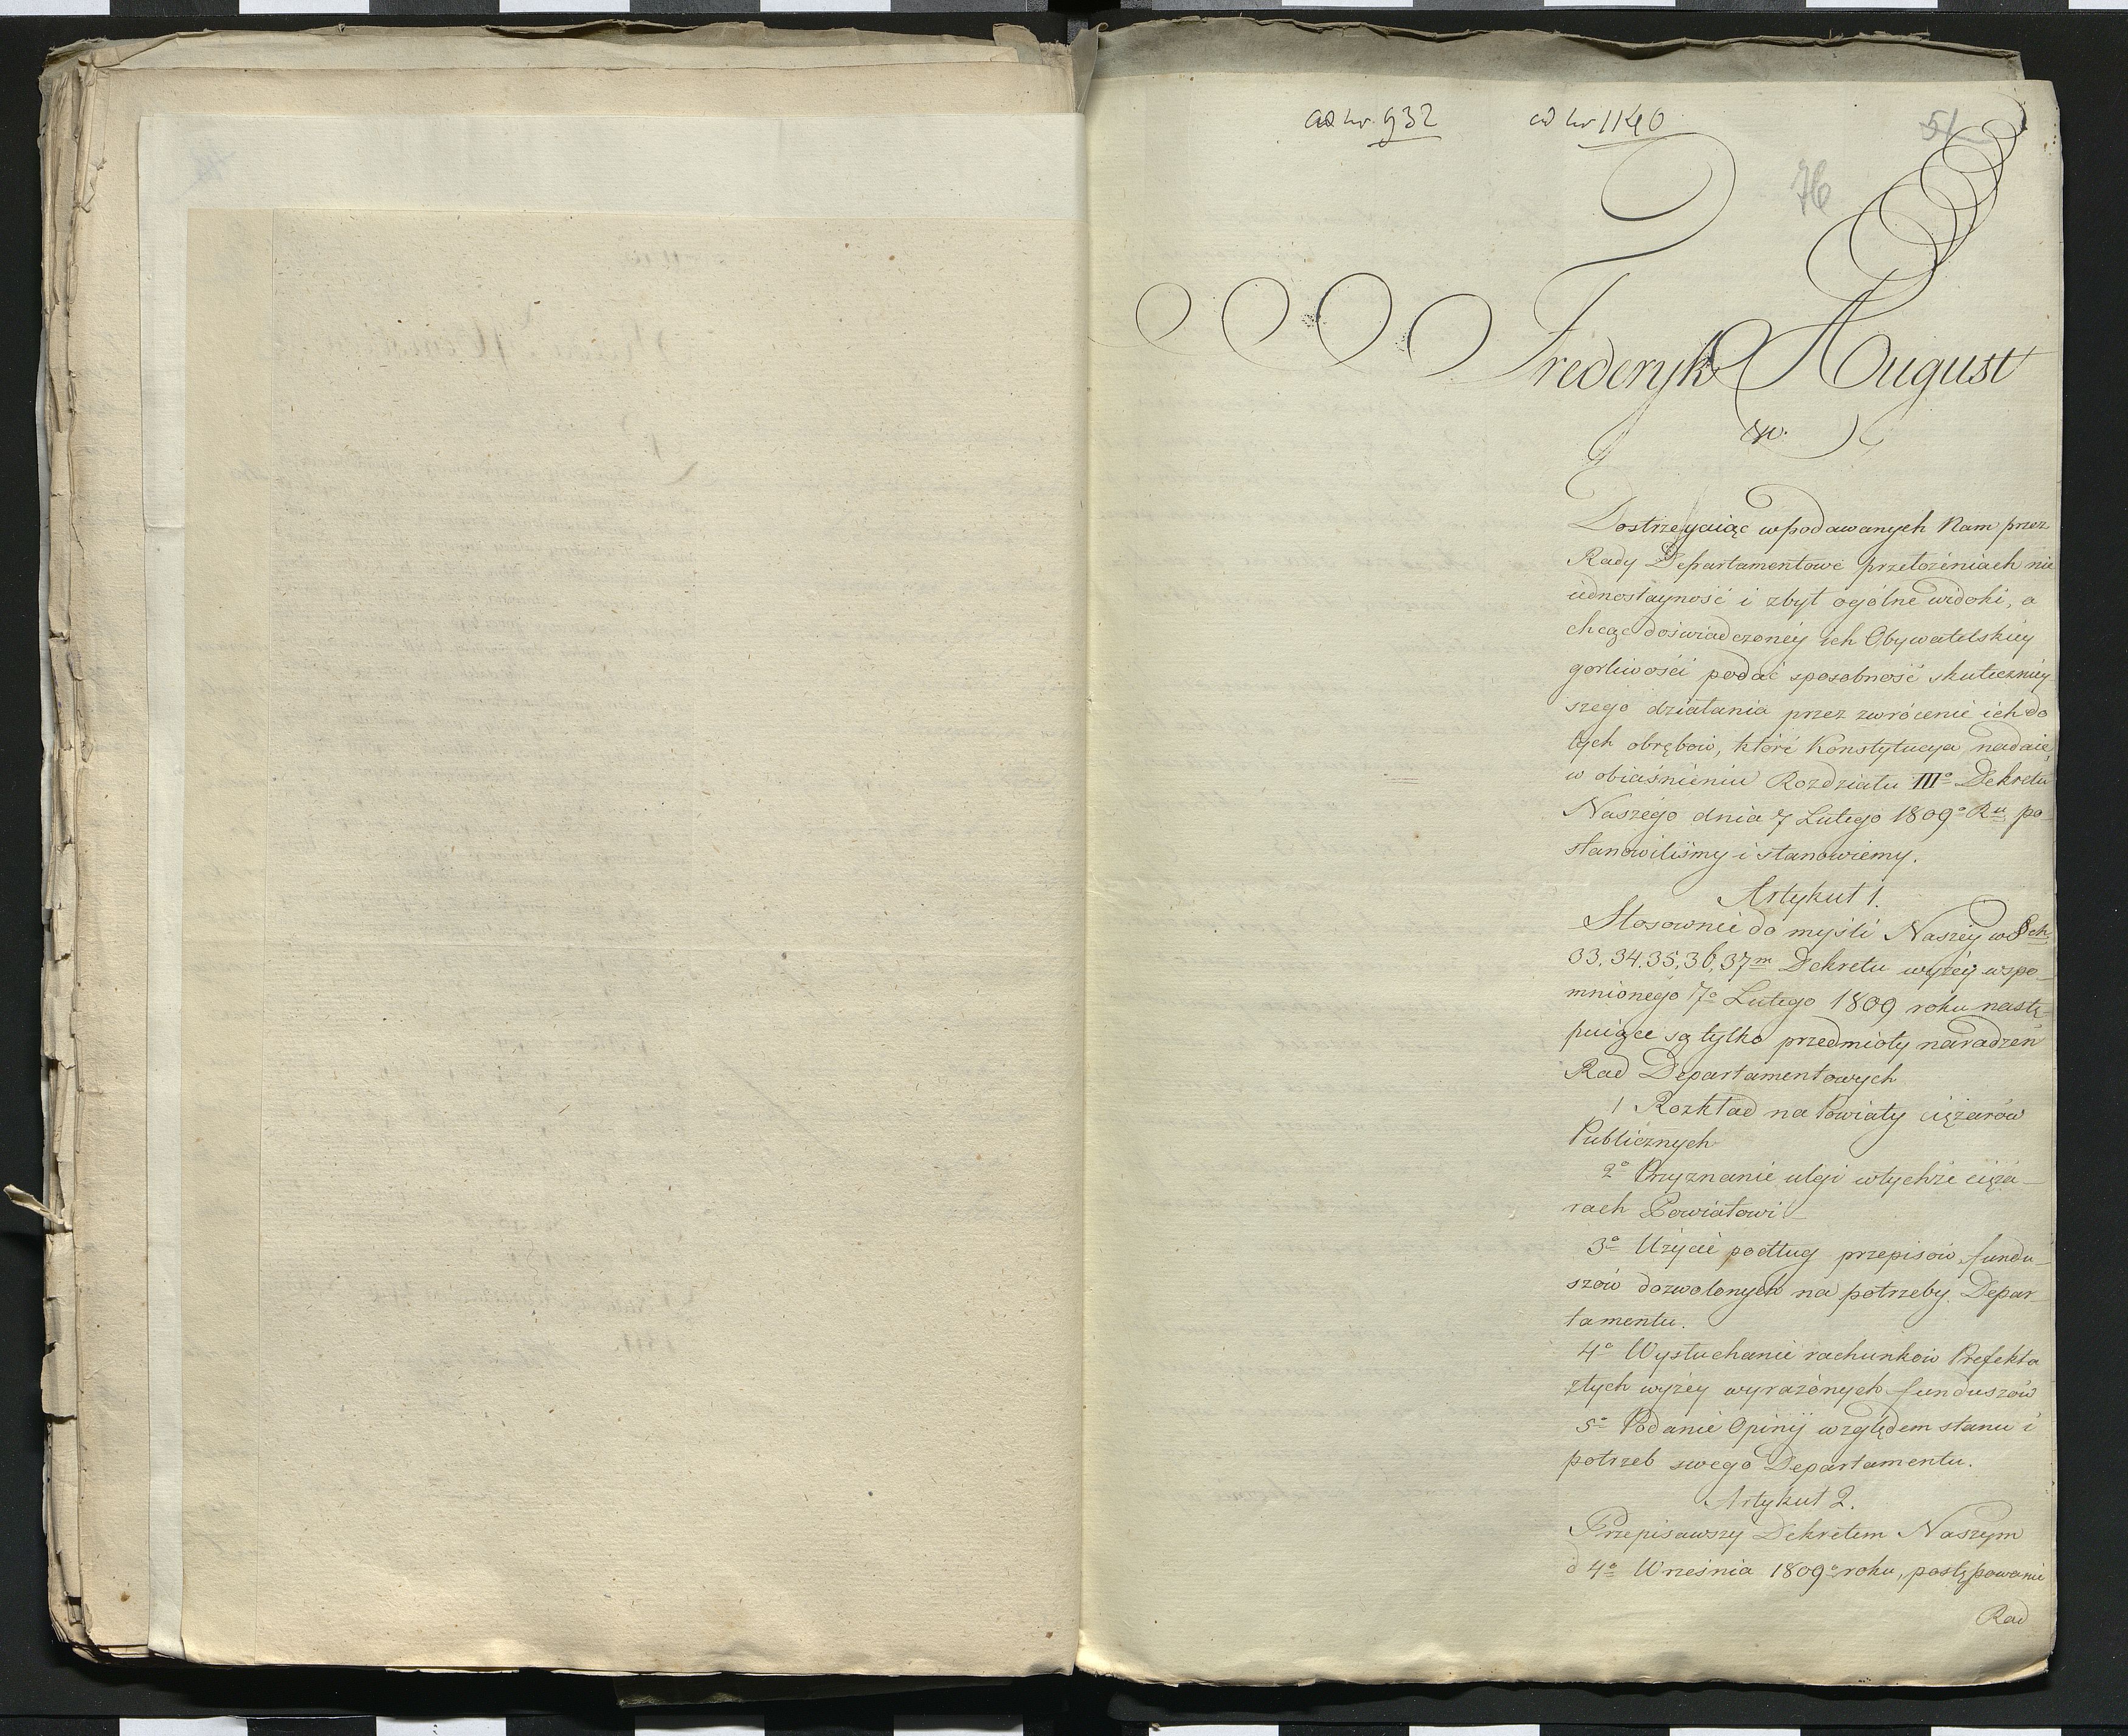 ad nr. 932 ad nr 1140 51
76
Frederyk August
&c.
Dostrzegaiąc w podawanych Nam przez
Rady Departamentowe przełożeniach nie
iednostayność i zbyt ogólne widoki, a
chcąc doświadczoney ich Obywatelskiey
gorliwości podać sposobność skuteczniey
szego działania przez zwrócenie ich do
tych obrębów, które Konstytucya nadaie,
w obiaśnieniu Rozdziału III° Dekretu
Naszego dnia 7 Lutego 1809° Ru po
stanowiliśmy i stanowiemy.
Artykuł 1.
Stosownie do myśli Naszey w §ch
33. 34. 35, 36, 37m Dekretu wyżey wspo-
mnionego 7° Lutego 1809 roku nastę-
puiące są tylko przedmioty naradzeń
Rad Departamentowych
1 Rozkład na Powiaty ciężarów
Publicznych
2° Przyznanie ulgi w tychże cięża-
rach Powiatowi
3° Użycie podług przepisów fundu-
szów dozwolonych na potrzeby Depar-
tamentu.
4° Wysłuchanie rachunków Prefekta
z tych wyżey wyrażonych funduszów
5° Podanie Opinij względem stanu i
potrzeb swego Departamentu.
Artykuł 2.
Przepisawszy Dekretem Naszym
d 4° Września 1809° roku, postępowanie
Rad